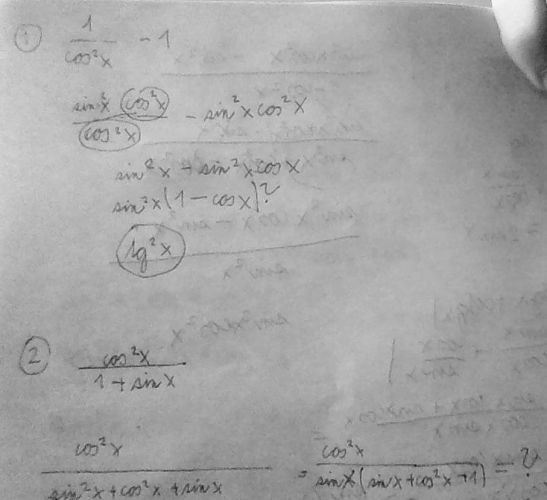 ① 1/cos²x - 1
sin²x cos²x / cos²x - sin²x cos²x
sin²x - sin²x cos x
sin²x(1 - cos x)?
tg²x
② cos²x / 1 + sin x
cos²x / sin²x + cos²x + sin x = cos²x / sin x (sin x + cos²x + 1) = ?